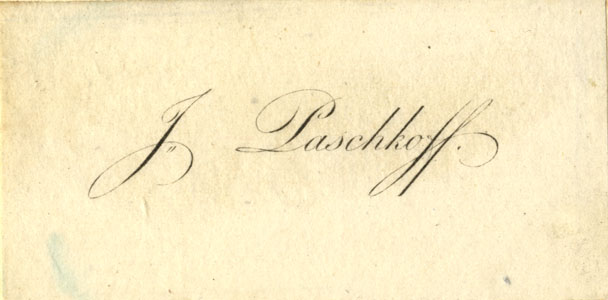 J„ Paschkoff.